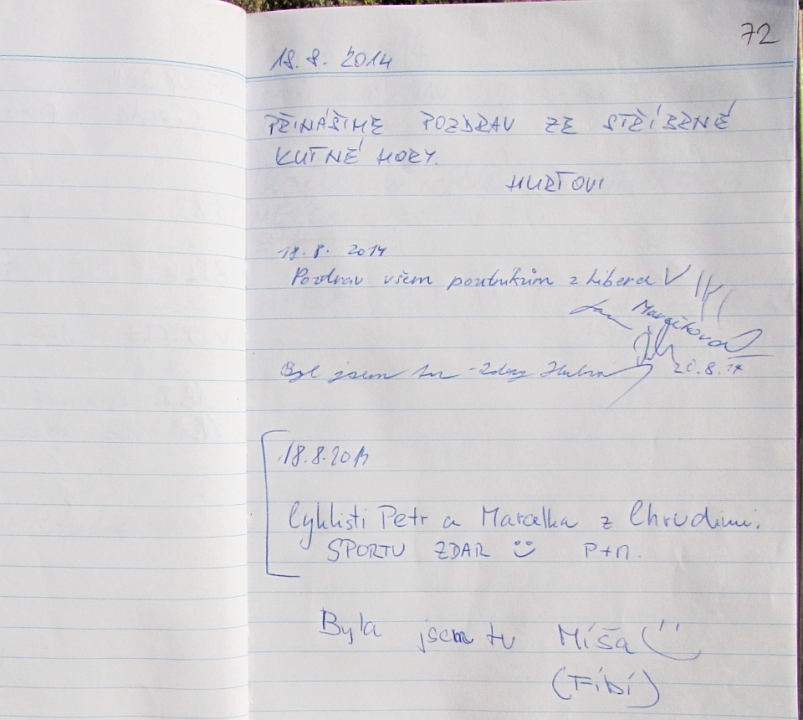 72
18. 8. 2014
PŘINÁŠÍME POZDRAV ZE STŘÍBRNÉ
KUTNÉ HORY.
HURTOVI
18. 8. 2014
Pozdrav všem poutníkům z Liberce
Jan Maračková
Byl jsem tu
18.8.2014
Cyklisti Petr a Marcelka z Chrudimi.
SPORTU ZDAR P+M.
Byla jsem tu Míša
(Fibí)